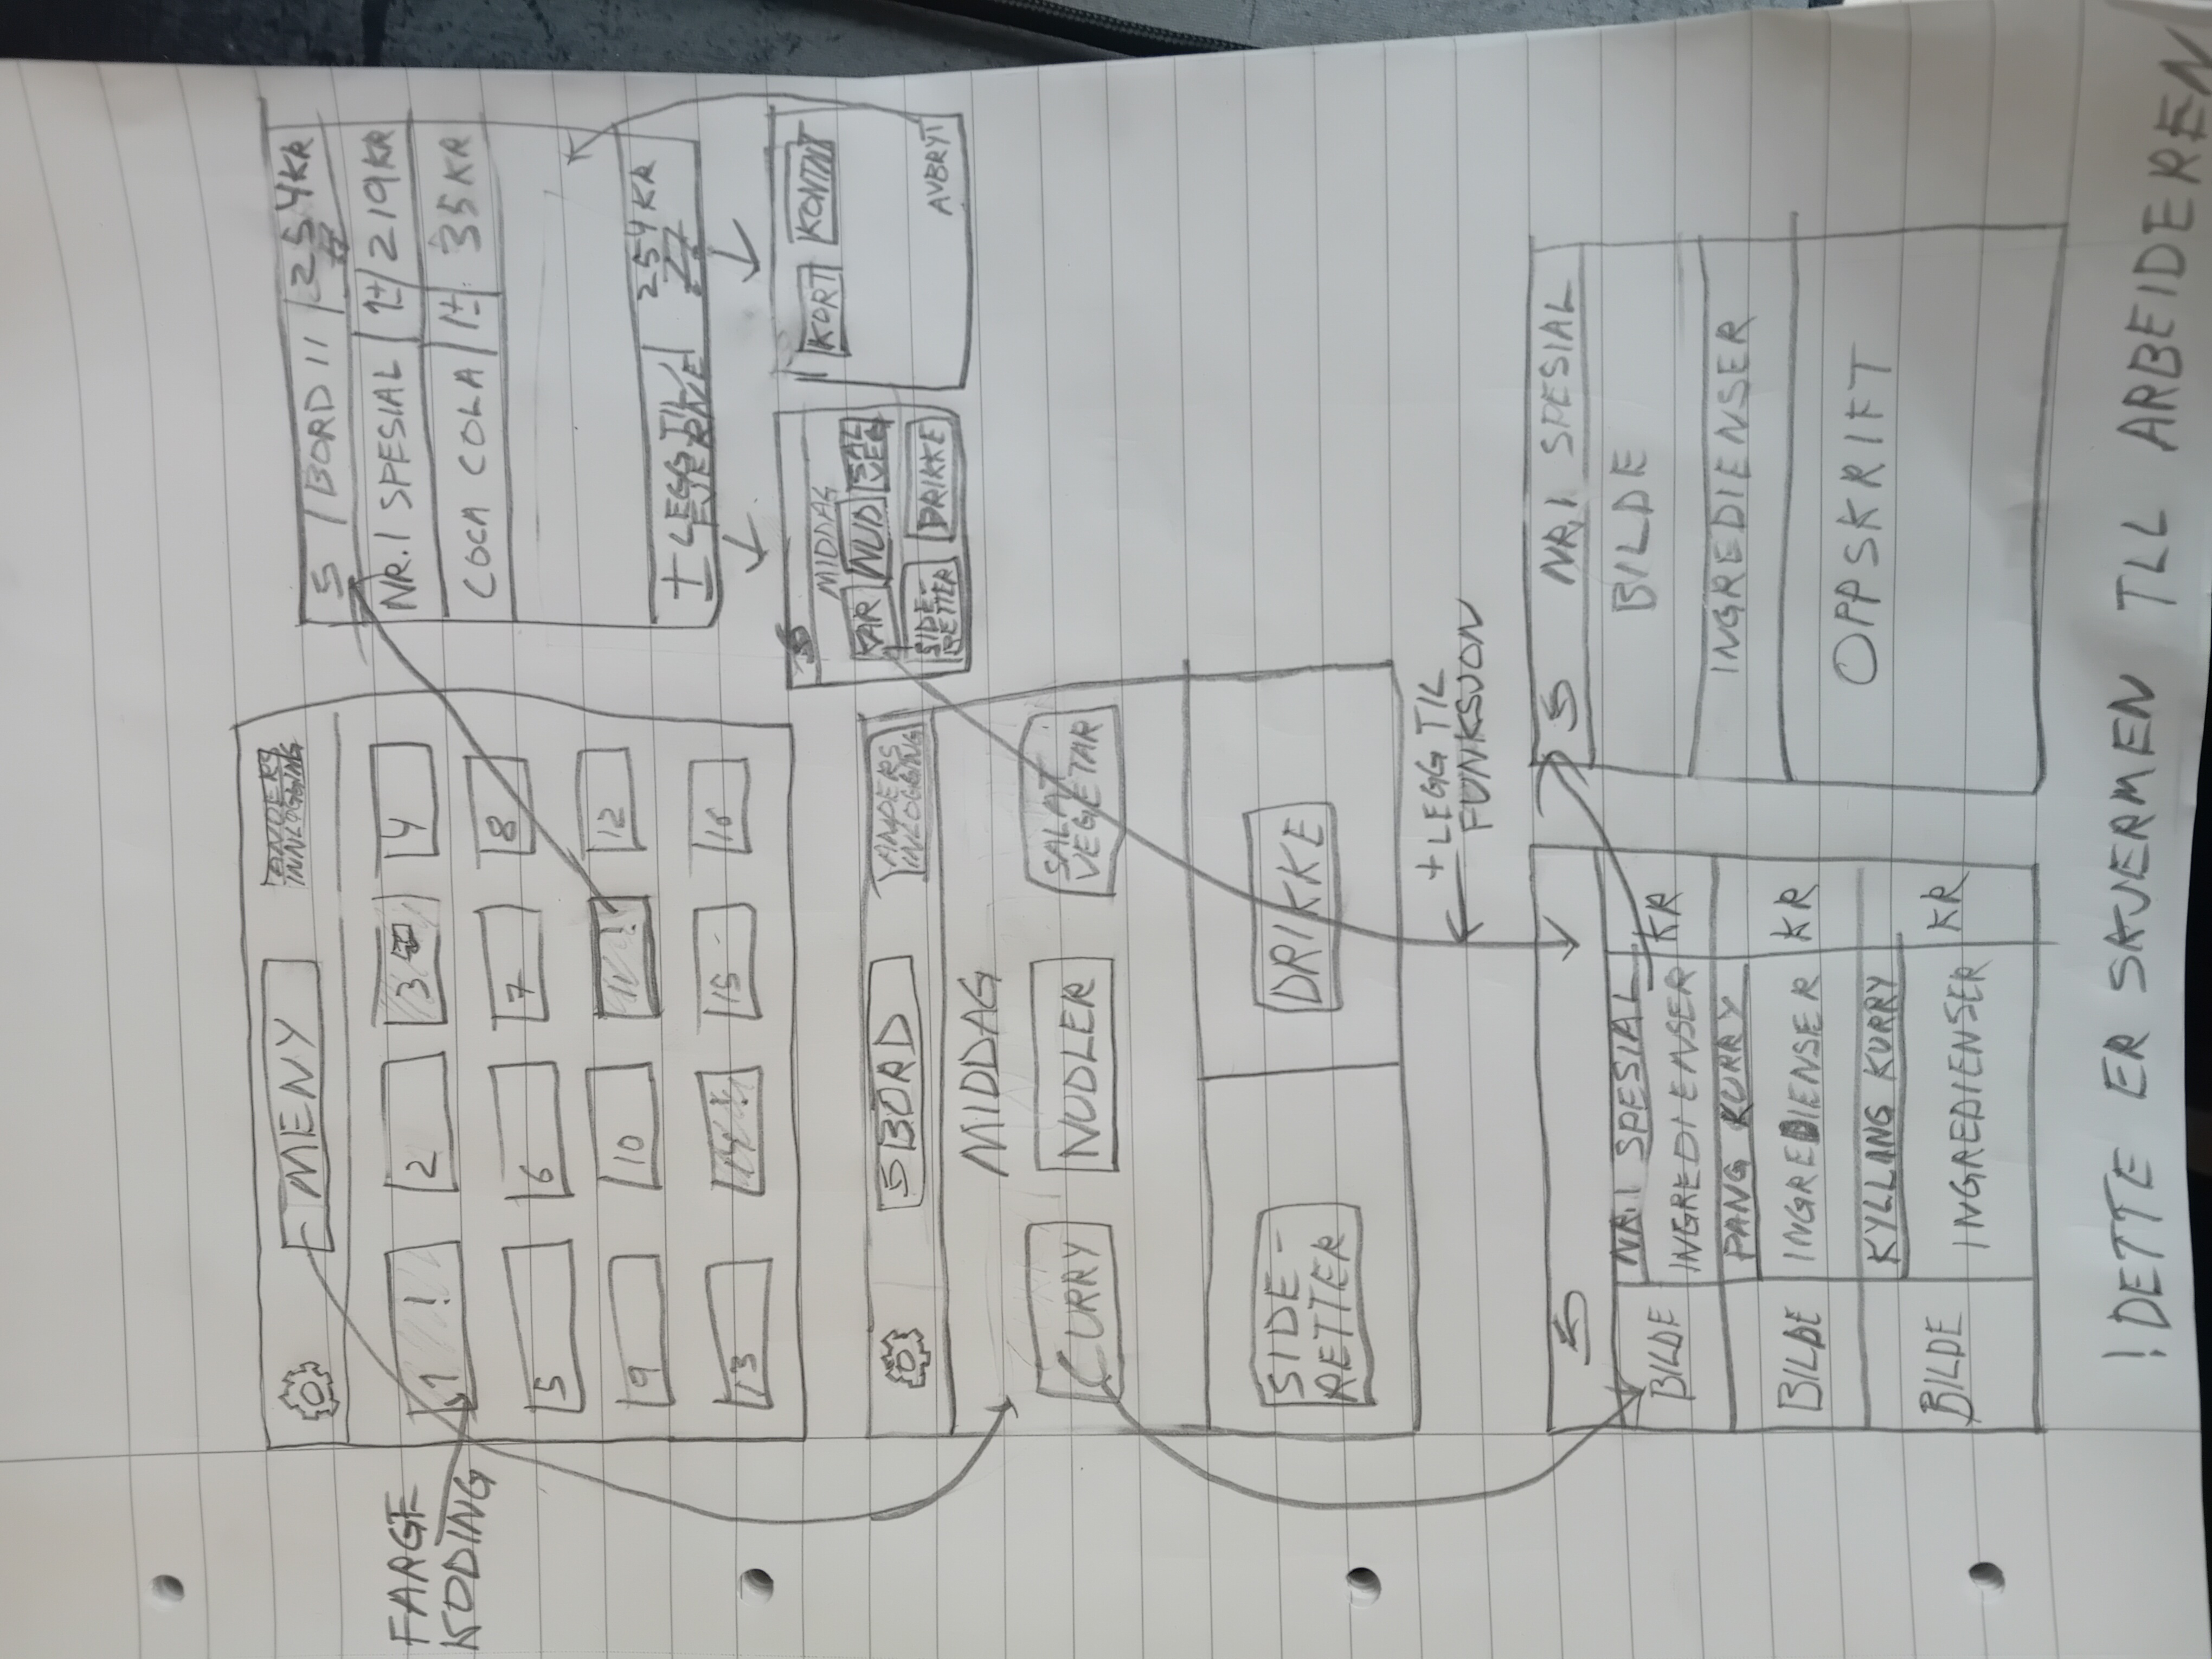 MENY
ANDERS
INNLOGGING
FARGE
KODING
1 !
2
3
4
5
6
7
8
9
10
11 !
12
13
14 !
15
16
BORD 11
254 KR
NR.1 SPESIAL
1±
219 KR
COCA COLA
1±
35 KR
± LEGG TIL/
FJERNE
254 KR
MIDDAG
KAR
NUD
SAL
VEG
SIDE-
RETTER
DRIKKE
KORT
KONTNT
AVBRYT
BORD
ANDERS
INLOGGING
MIDDAG
CURRY
NUDLER
SALAT
VEGETAR
SIDE-
RETTER
DRIKKE
+ LEGG TIL
FUNKSJON
BILDE
NR.1 SPESIAL
INGREDIENSER
KR
BILDE
PANG KURRY
INGREDIENSER
KR
BILDE
KYLLING KURRY
INGREDIENSER
KR
NR.1 SPESIAL
BILDE
INGREDIENSER
OPPSKRIFT
! DETTE ER SKJERMEN TLL ARBEIDEREN